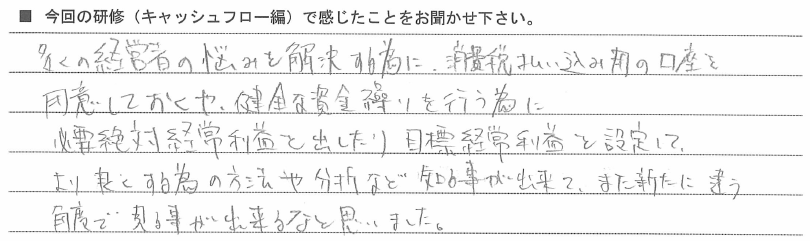 ■ 今回の研修（キャッシュフロー編）で感じたことをお聞かせ下さい。
多くの経営者の悩みを解決する為に、消費税払い込み用の口座を
用意しておくや、健全な資金繰りを行う為に
必要絶対経常利益を出したり目標経常利益を設定して、
より良くする為の方法や分析など知る事が出来て、また新たに違う
角度で見る事が出来るなと思いました。